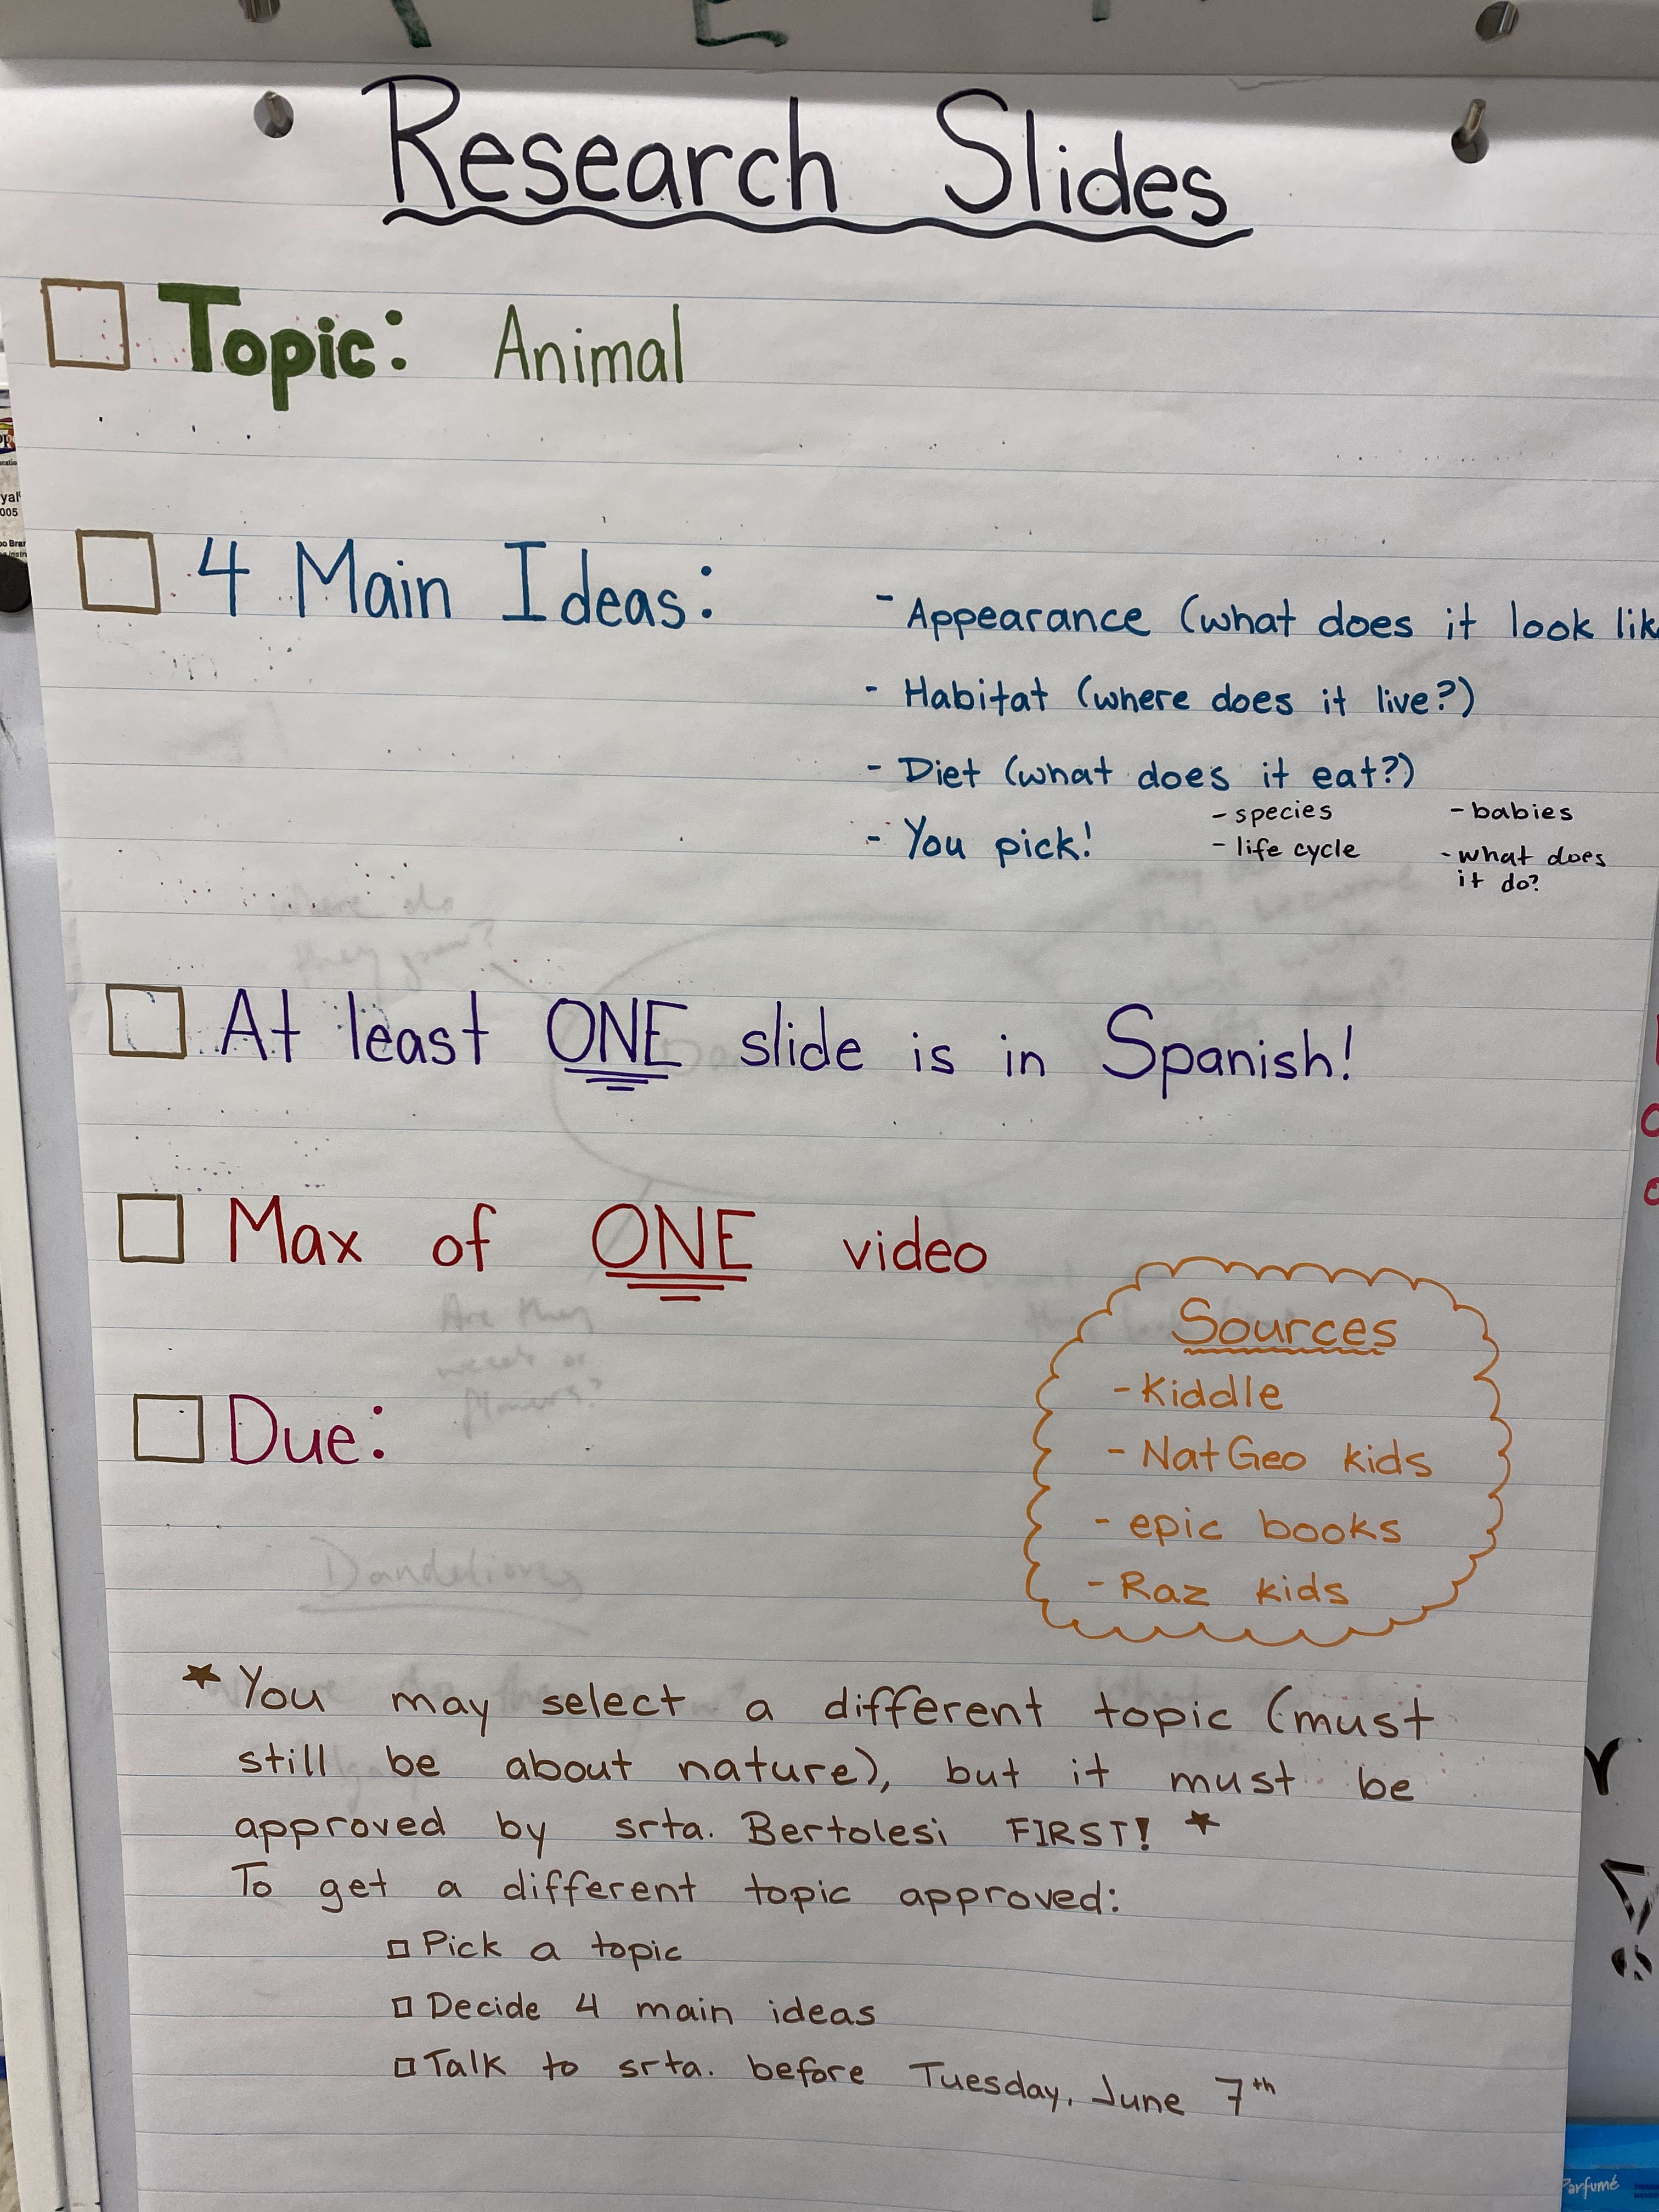 Research Slides
Topic: Animal
4 Main Ideas:
- Appearance (what does it look lik
- Habitat (where does it live?)
- Diet (what does it eat?)
- You pick!
- species
- life cycle
- babies
- what does
it do?
At least ONE slide is in Spanish!
Max of ONE video
Due:
Sources
- Kiddle
- NatGeo kids
- epic books
- Raz kids
* You may select a different topic (must
still be about nature), but it must be
approved by srta. Bertolesi FIRST! *
To get a different topic approved:
Pick a topic
Decide 4 main ideas
Talk to srta. before Tuesday, June 7th
where do
they grow?
Are they
weeds or
flowers?
Dandelions
Parfumé